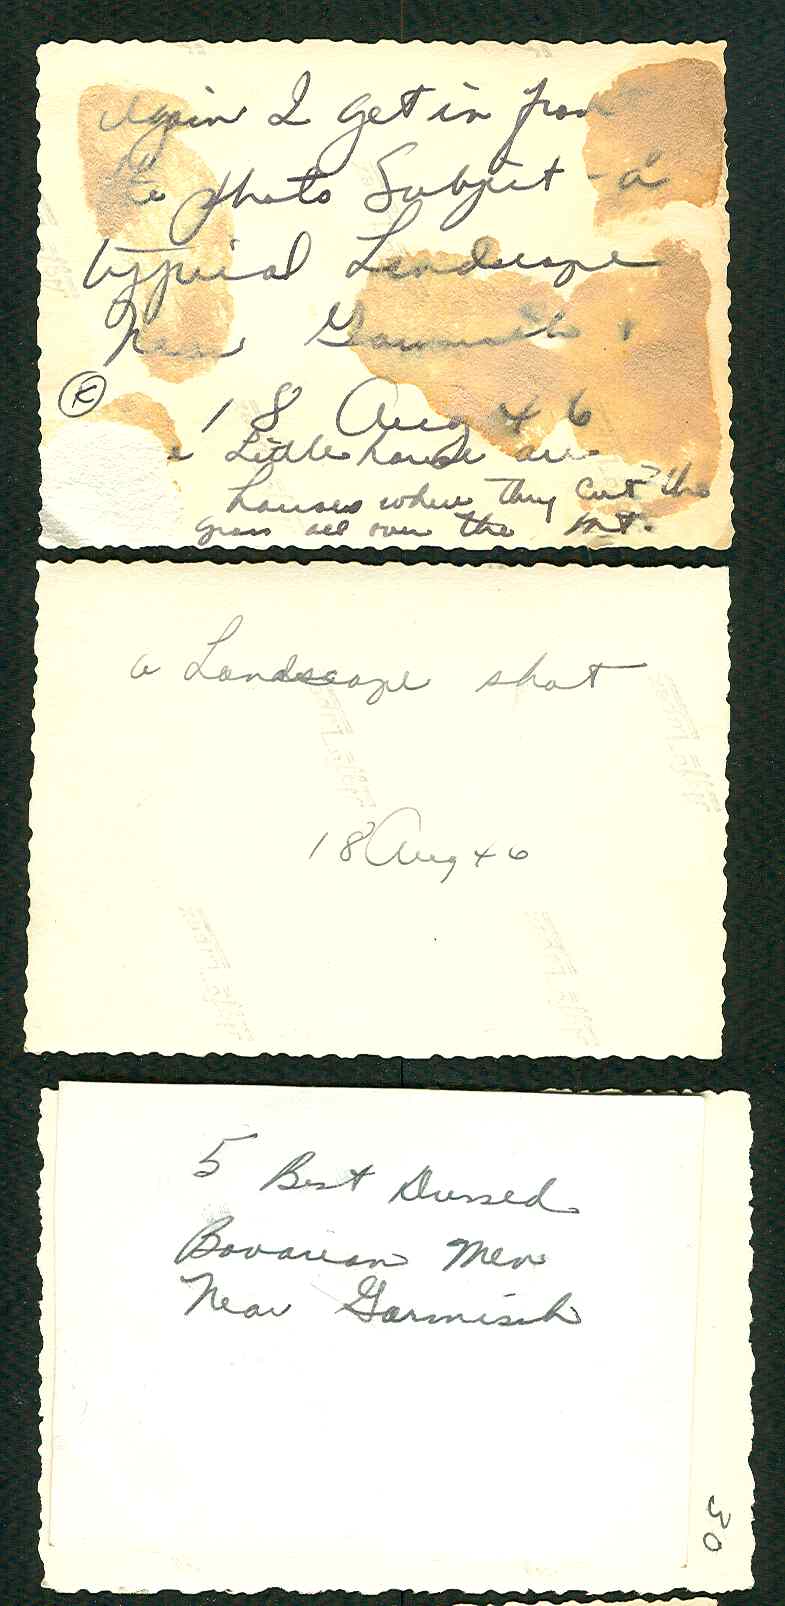 Again I get in front
the photo Subject - a
typical Landscape
Near Garmisch
K
18 Aug 46
Little house are
houses where they cut the
grass all over the mt.
a Landscape shot
18 Aug 46
5 Best Dressed
Bavarian Men
Near Garmisch
30